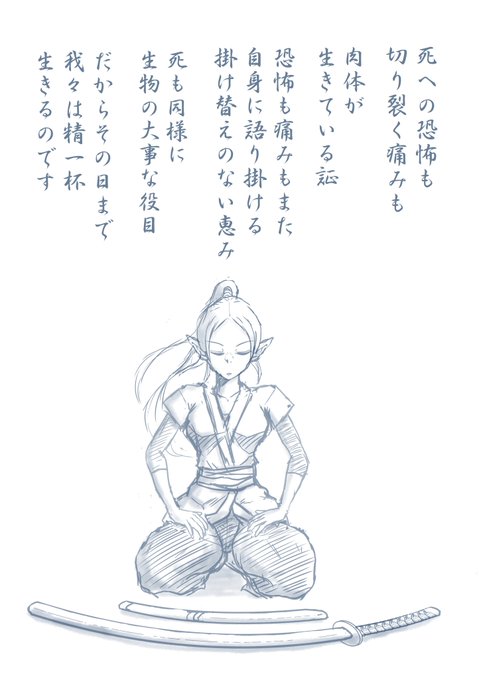 死への恐怖も
切り裂く痛みも
肉体が
生きている証
恐怖も痛みもまた
自身に語り掛ける
掛け替えのない恵み
死も同様に
生物の大事な役目
だからその日まで
我々は精一杯
生きるのです